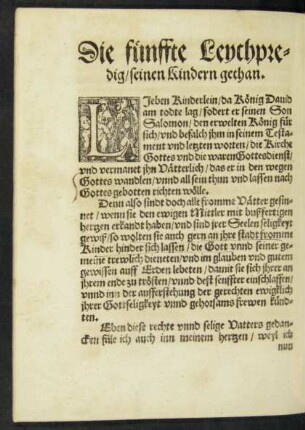 Die fünffte Leychpre-
dig/seinen Kindern gethan.
LIeben Kinderlein/da König Dauid
am todte lag/fodert er seinen Son
Salomon/den erwelten König für
sich/vnd befalch jhm in seinem Testa-
ment vnd letzten worten/die Kirche
Gottes vnd die waren Gottesdienst/
vnd vermanet jhn Vätterlich/das er in den wegen
Gottes wandlen/vnnd all sein thun vnd lassen nach
Gottes gebotten richten wölle.
Denn also sindt doch alle fromme Vätter gesin-
net/wenn sie den ewigen Mittler mit bußfertigen
hertzen erkandt haben/vnd sind jrer Seelen seligkeyt
gewiß/so wolten sie auch gern an jhre stadt fromme
Kinder hinder sich lassen/die Gott vnnd seiner ge-
meine trewlich dieneten/vnd im glauben vnd gutem
gewissen auff Erden lebeten/damit sie sich jhrer an
jhrem ende zu trösten/vnnd dest senffter einschlaffen/
vnnd inn der aufferstehung der gerechten ewigklich
jhrer Gottseligkeyt vnnd gehorsams frewen künd-
ten.
Eben diese rechte vnnd selige Vatters gedan-
cken füle ich auch inn meinem hertzen/weyl ich
nun